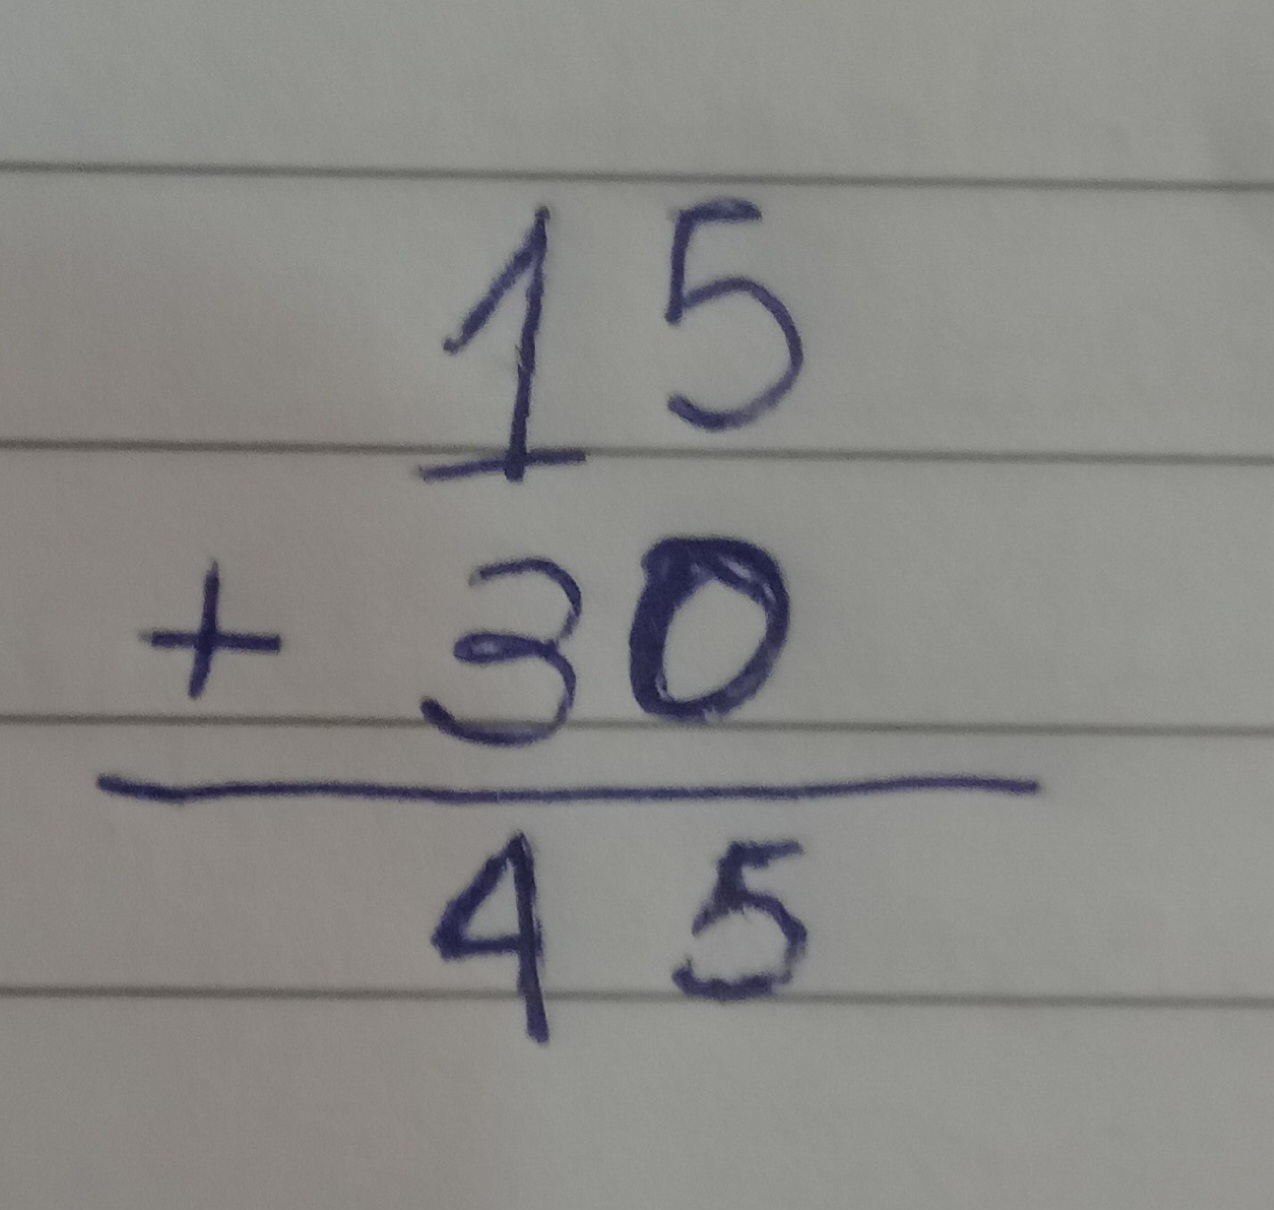 15
+ 30
45